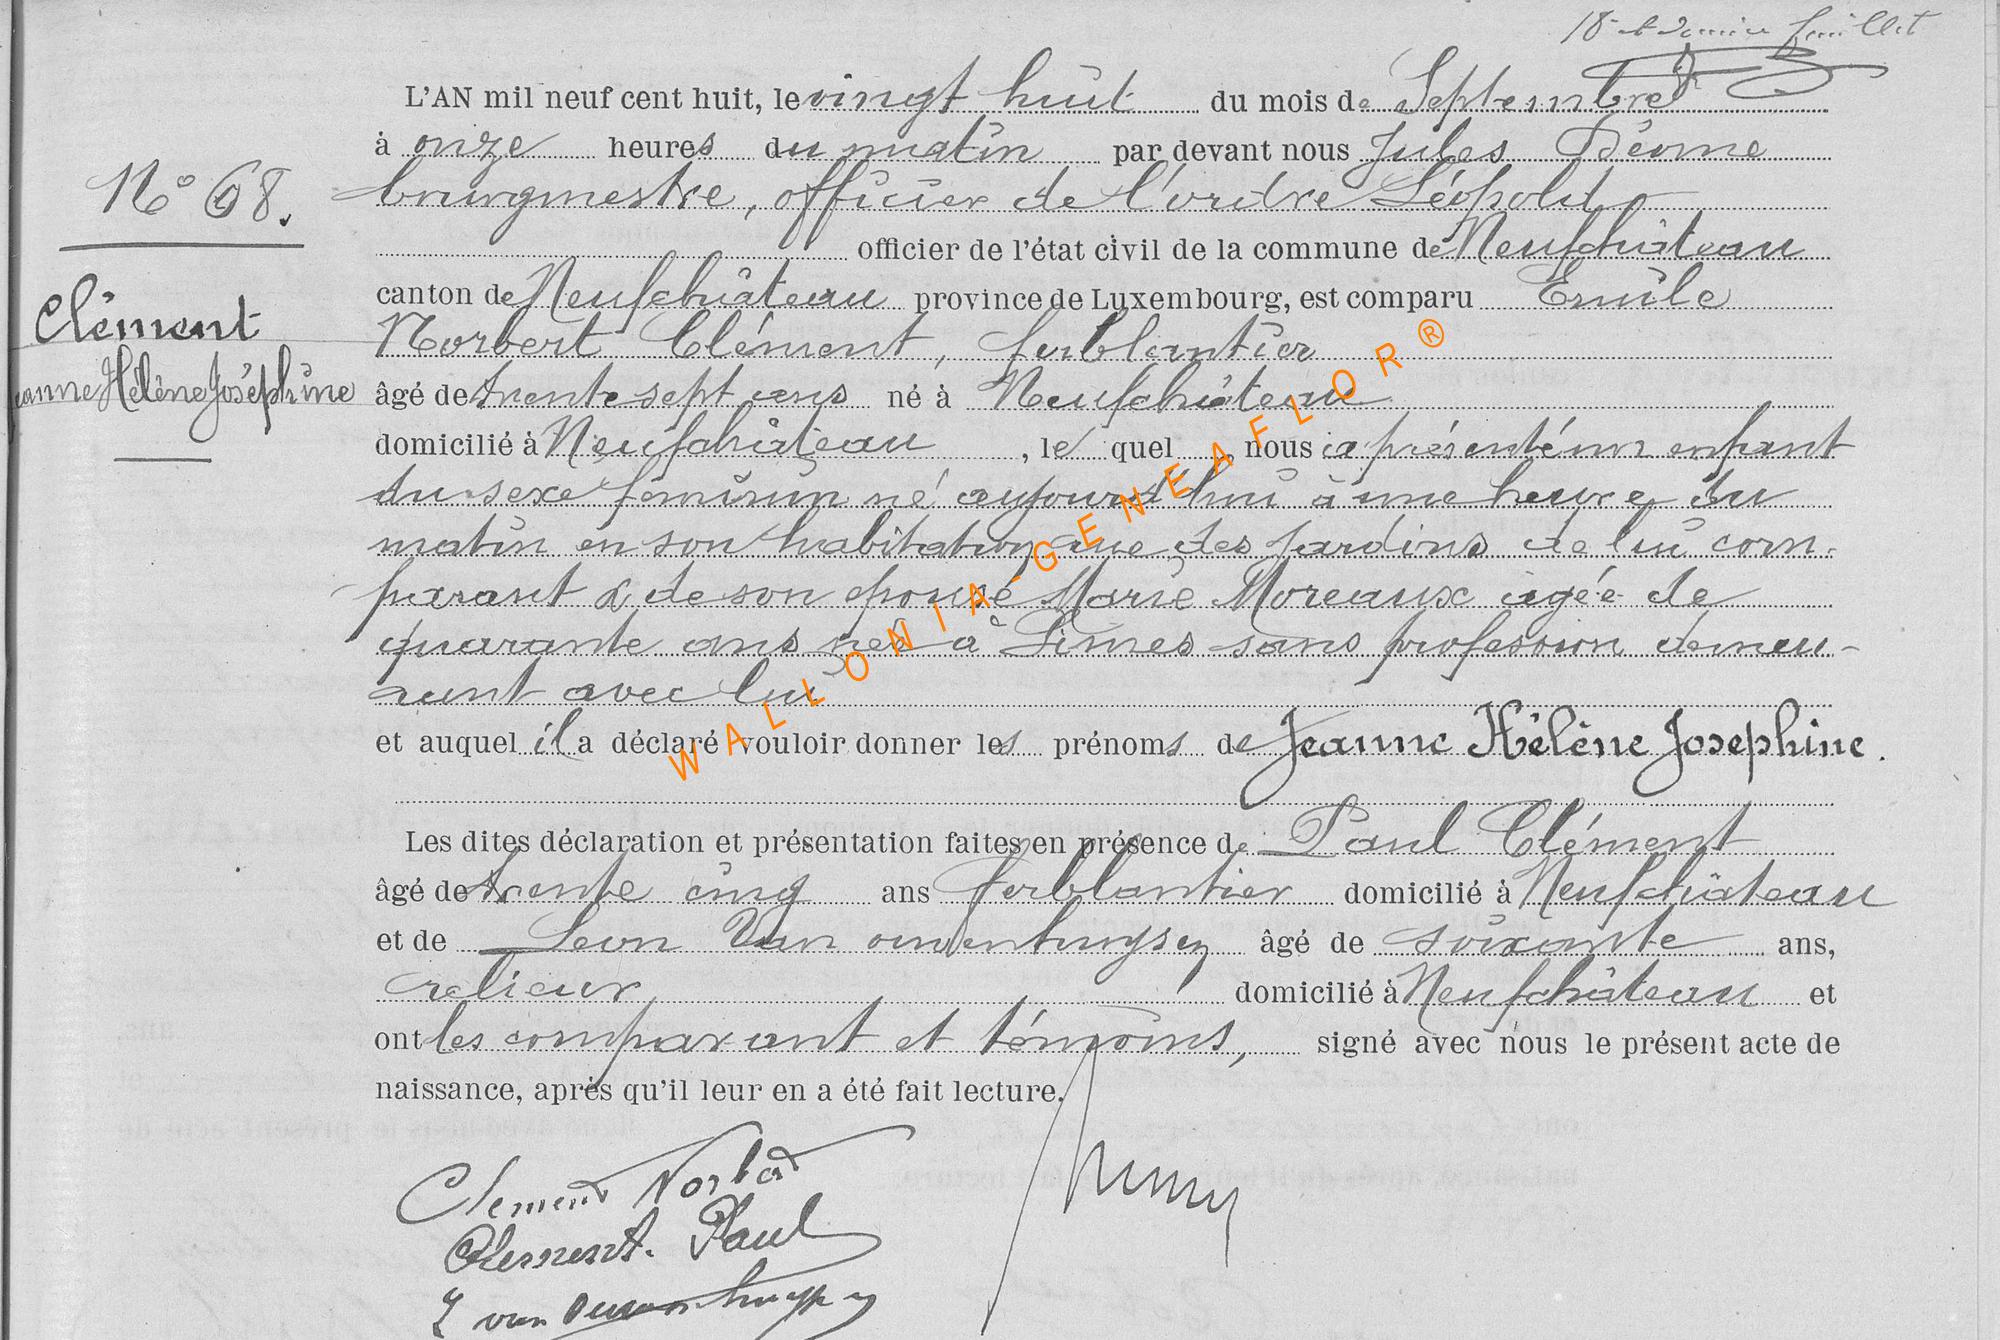 18e et dernier feuillet
L'AN mil neuf cent huit, le vingt huit du mois de Septembre
à onze heures du matin par devant nous Jules
N° 68.
bourgmestre, officier de l'ordre Léopold
officier de l'état civil de la commune de Neufchâteau
canton de Neufchâteau province de Luxembourg, est comparu Emile
Clément
Norbert Clément, ferblantier
Jeanne Hélène Joséphine
âgé de trente sept ans né à Neufchâteau
domicilié à Neufchâteau, le quel, nous a présenté un enfant
du sexe féminin né aujourd'hui à une heure du
matin en son habitation rue des jardins de lui com-
parant & de son épouse Marie Moreaux agée de
quarante ans née à Limes sans profession demeu-
rant avec lui
et auquel il a déclaré vouloir donner les prénoms de Jeanne Hélène Josephine.
Les dites déclaration et présentation faites en présence de Paul Clément
âgé de trente cinq ans ferblantier domicilié à Neufchâteau
et de Leon Van âgé de soixante ans,
relieur domicilié à Neufchâteau et
ont les comparant et témoins, signé avec nous le présent acte de
naissance, après qu'il leur en a été fait lecture.
Clement Norbert
Clement. Paul
L van
WALLONIA-GENEAFLOR®